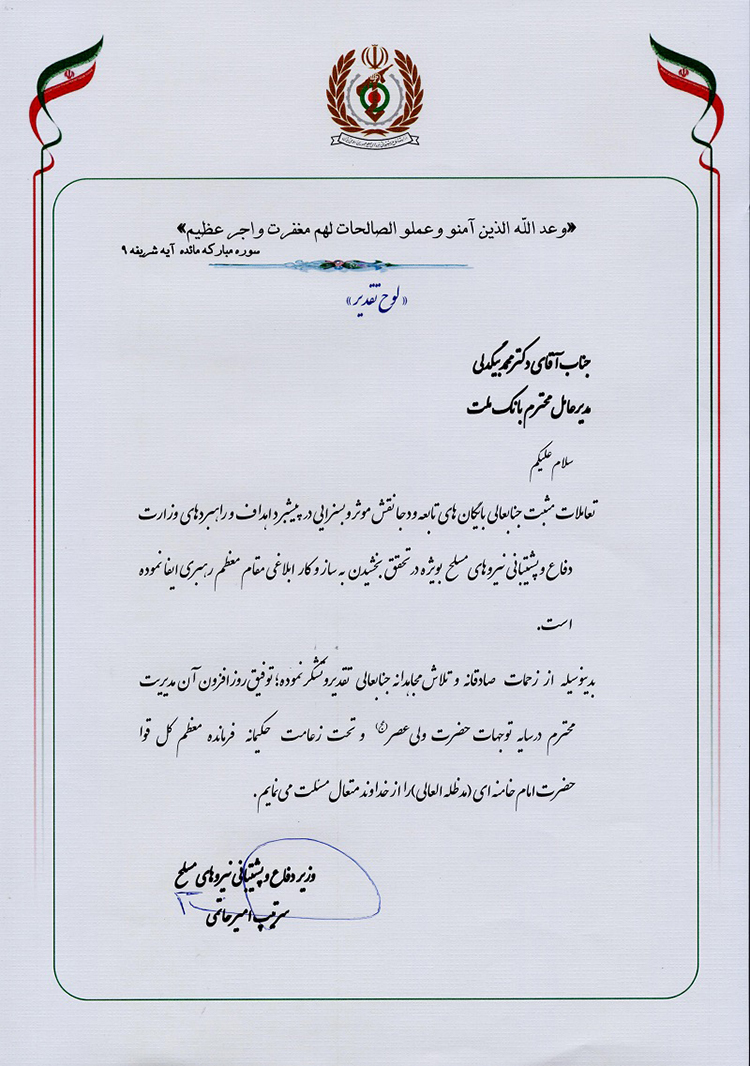 «وعد اللّه الذین آمنو وعملو الصالحات لهم مغفرت واجر عظیم»
سوره مبارکه مائده آیه شریفه ۹
« لوح تقدیر»
جناب آقای دکتر محمد بیگدلی
مدیرعامل محترم بانک ملت
سلام علیکم
تعاملات مثبت جنابعالی بایگان های تابعه ودجا نقش موثر و بسزایی در پیشبرد اهداف و راهبردهای وزارت
دفاع و پشتیبانی نیروهای مسلح بویژه در تحقق بخشیدن به ساز و کار ابلاغی مقام معظم رهبری ایفا نموده
است.
بدینوسیله از زحمات صادقانه و تلاش مجاهدانه جنابعالی تقدیر و تشکر نموده؛ توفیق روز افزون آن مدیریت
محترم درسایه توجهات حضرت ولی عصر(عج) و تحت زعامت حکیمانه فرمانده معظم کل قوا
حضرت امام خامنه ای (مدظله العالی)را از خداوند متعال مسئلت می نمایم.
وزیر دفاع و پشتیبانی نیروهای مسلح
سرتیپ امیر حاتمی